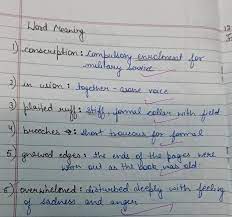 Word Meaning
1) conscription: compulsory enrolment for
military service
2) in usion: together - same voice
3) plaited ruff: stiff, formal collar with field
4) breeches →: short trousous for formal
5) gnawed edges: the ends of the pages were
worn out as the book was old
6) overwhelmed: disturbed deeply with feeling
of sadness and anger